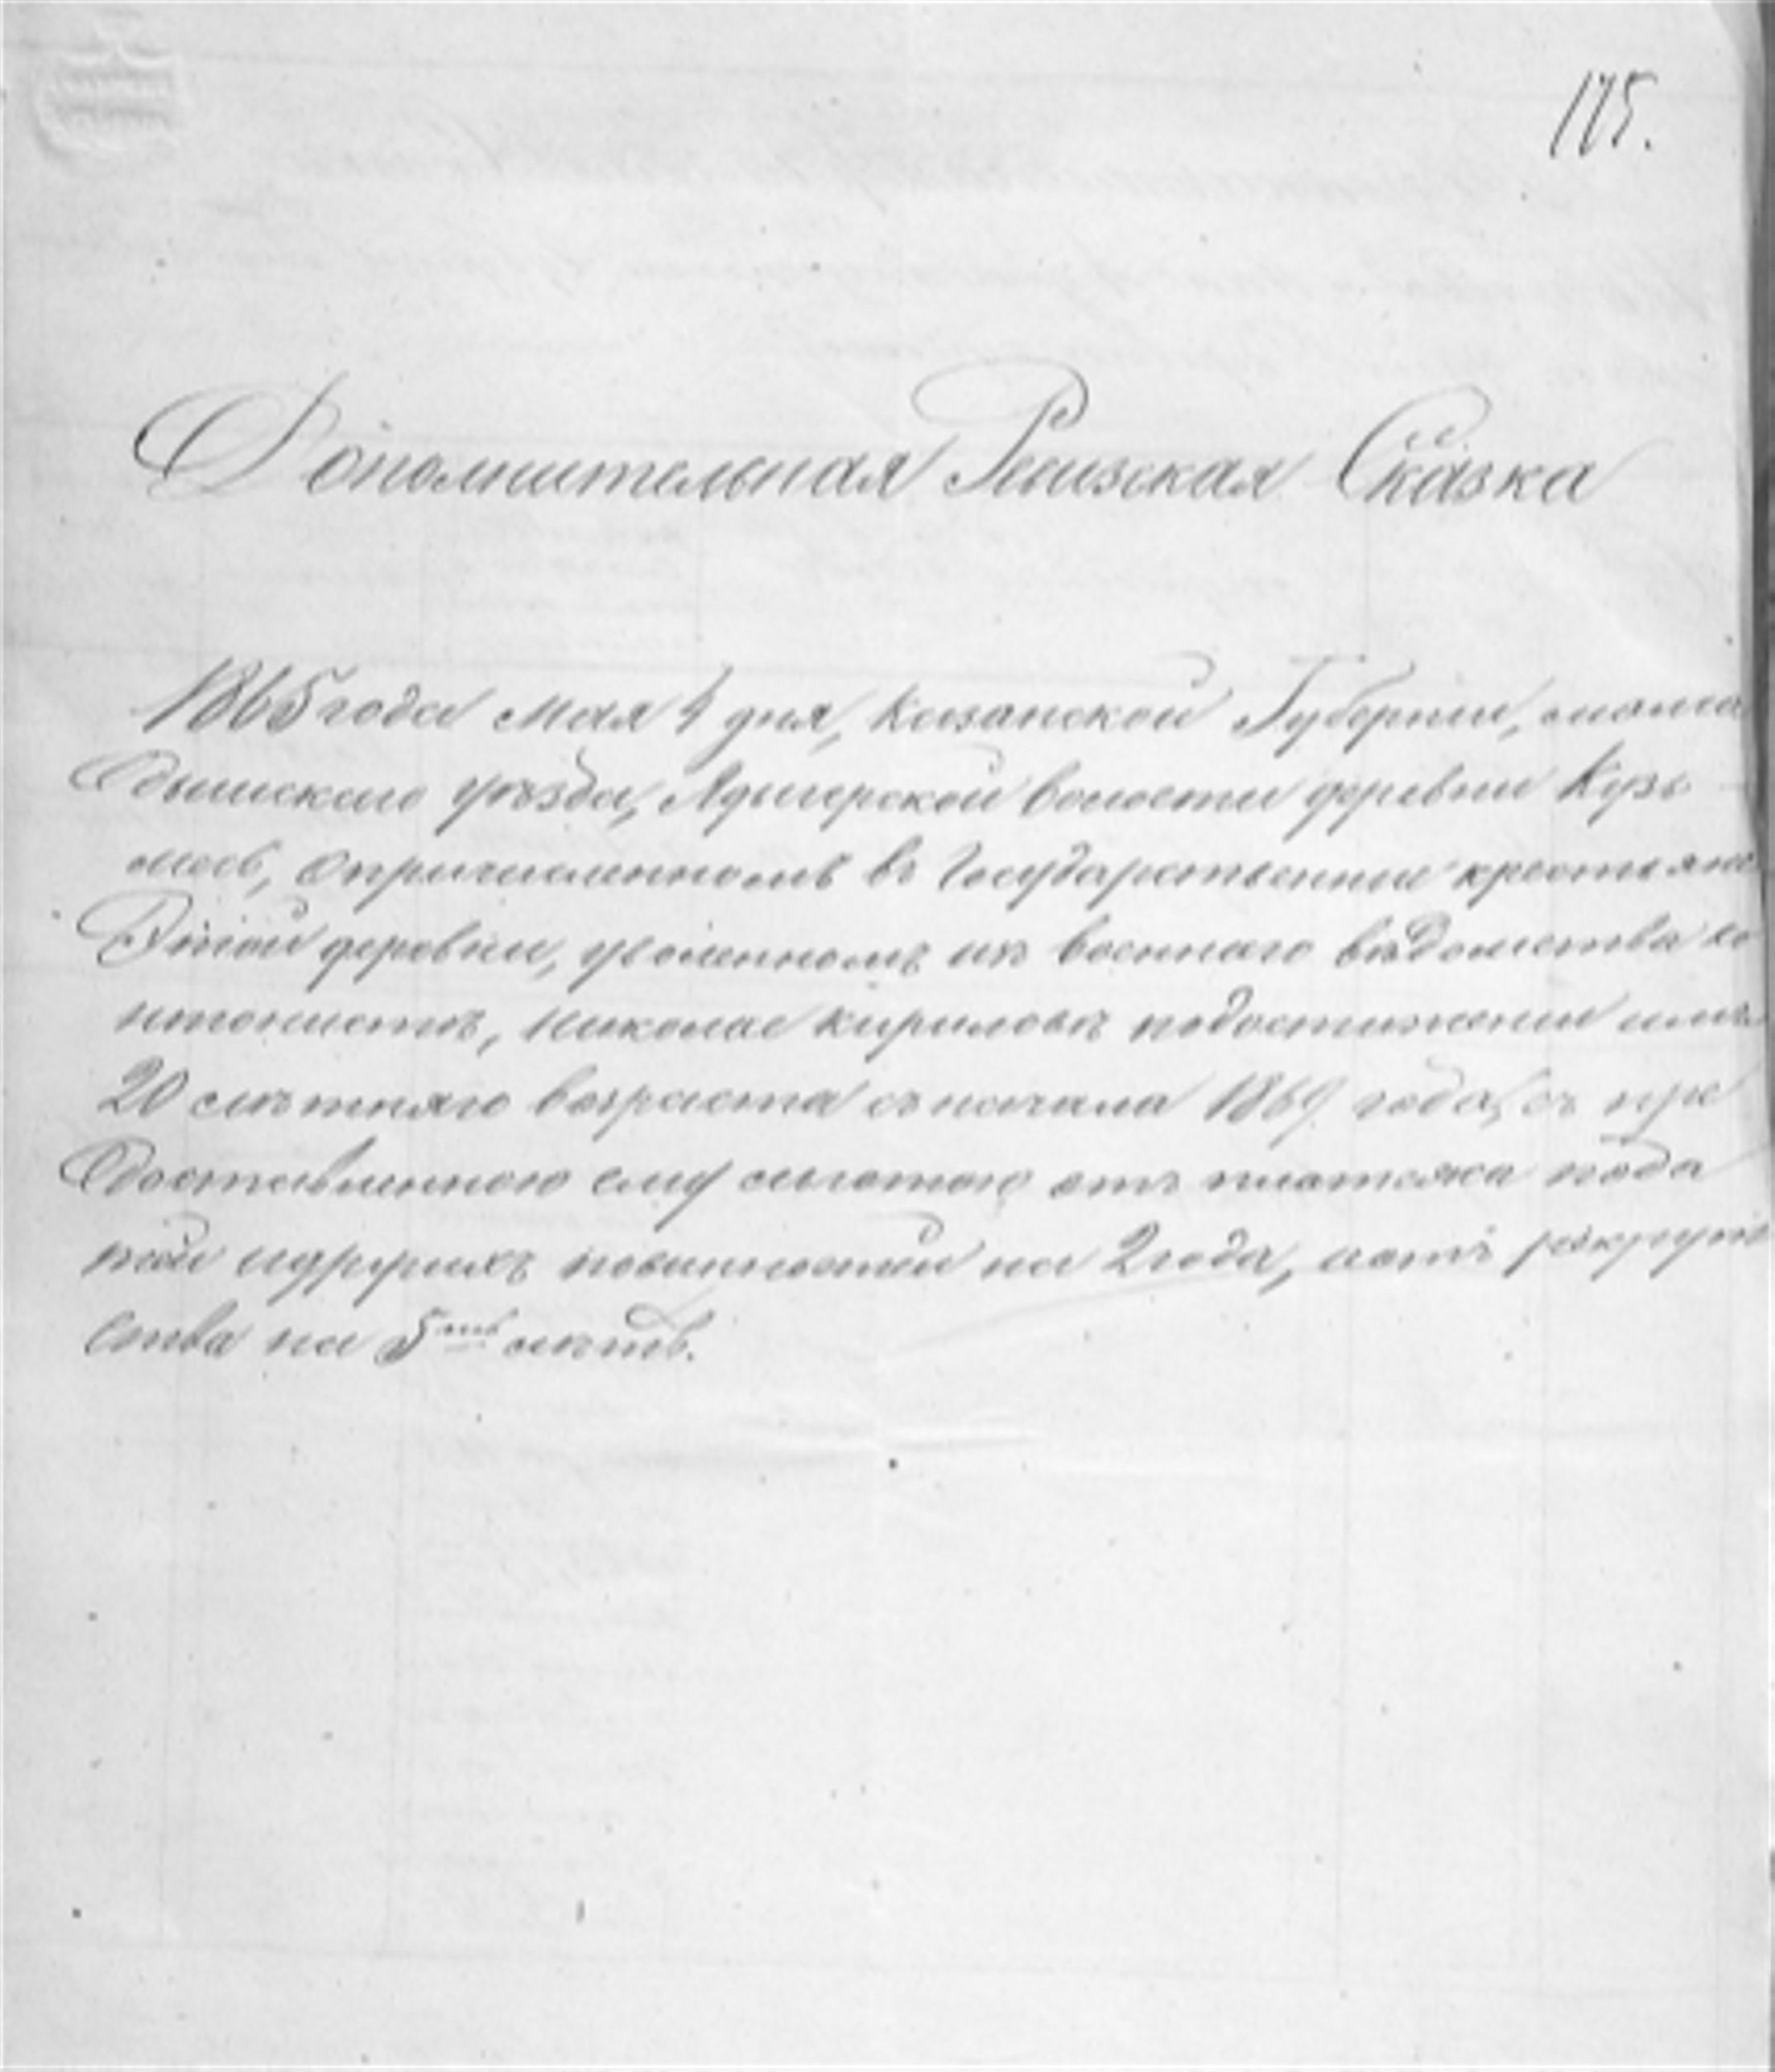 175.
Дополнительная Ревизская Сказка
1865 года Мая 4 дня, Казанской Губернии, мама
дышскаго уѣзда, Ядыгерской волости деревни Кузь
месь, опричисленномъ въ Государственные крестьяне
Этой деревни, уволенномъ изъ военнаго вѣдомства ка
нтонистѣ, Николае Кириловѣ подостижении имъ
20 лѣтняго возраста съ начала 1869 года, съ пре
доставленною ему льготою отъ платежа пода
тей идругихъ повинностей на 2 года, иотъ рекрут
ства на 5 лѣтъ.